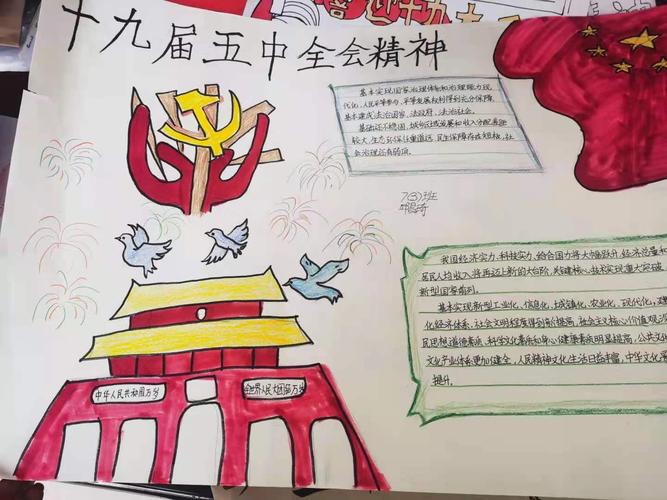 喜迎十九大
十九届五中全会精神
基本实现国家治理体系和治理能力现
代化，人民平等参与、平等发展权利得到充分保障，
基本建成法治国家、法治政府、法治社会。
基础还不稳固，城乡区域发展和收入分配差距
较大，生态环保任重道远，民生保障存在短板，社
会治理还有弱项。
7(3)班
我国经济实力、科技实力、综合国力将大幅跃升，经济总量和
居民人均收入将再迈上新的大台阶，关键核心技术实现重大突破
新型国家前列。
基本实现新型工业化、信息化、城镇化、农业化，现代化，建
化经济体系，社会文明程度得到新提高，社会主义核心价值观深
民思想道德素质、科学文化素质和身心健康素质明显提高，公共文化
文化产业体系更加健全，人民精神文化生活日益丰富，中华文化
提升。
中华人民共和国万岁
全世界人民大团结万岁